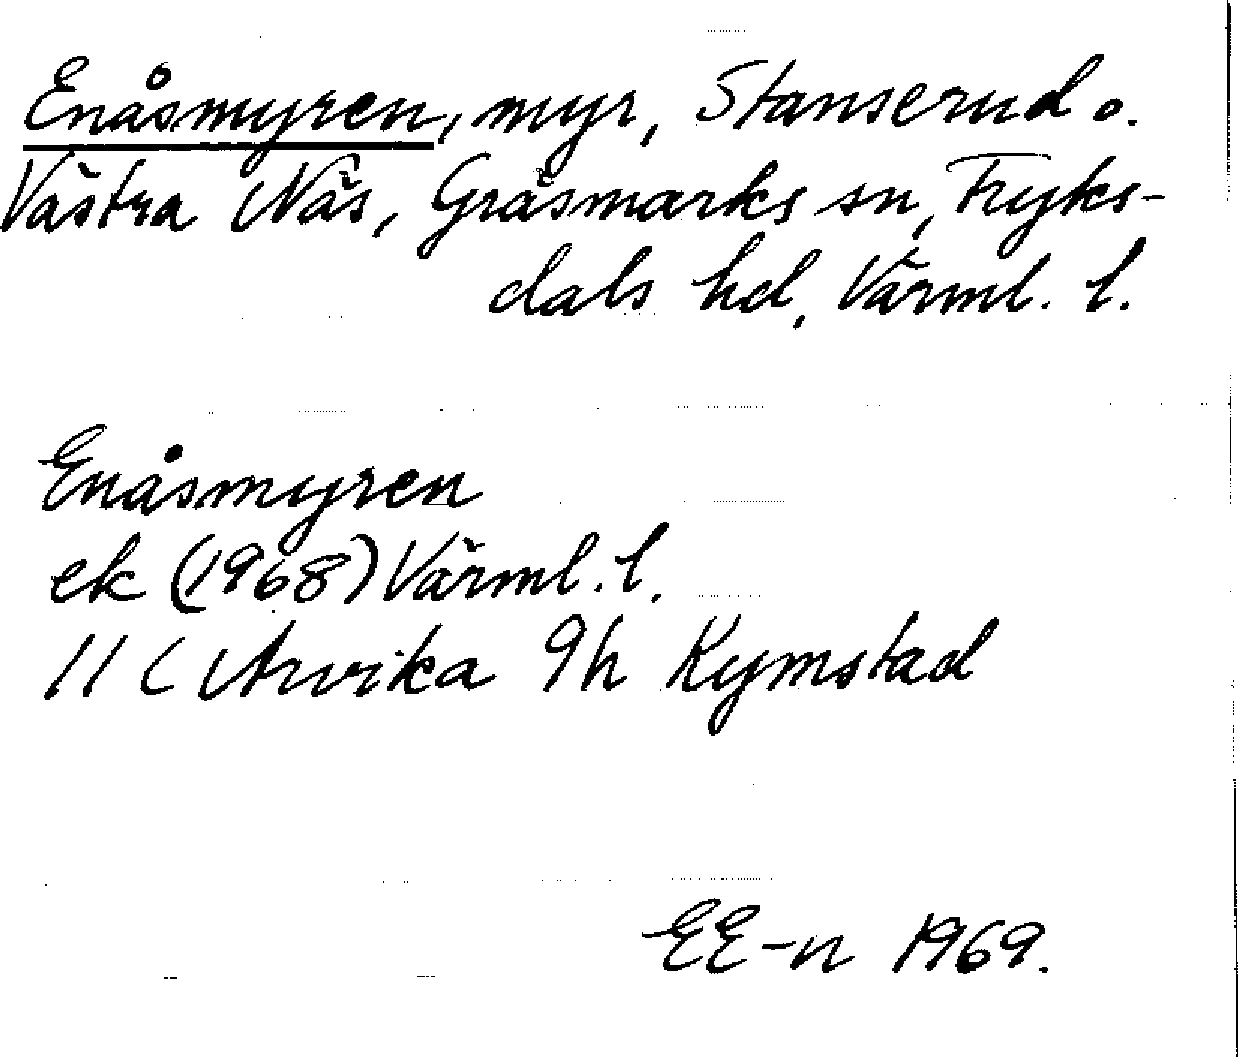 Enåsmyren, myr, Stanserud o.
Västra Näs, Gräsmarks sn, Fryks-
dals hd, Värml. l.
Enåsmyren
ek (1968) Värml. l.
11 C Arvika 9h Rymstad
EE-n 1969.